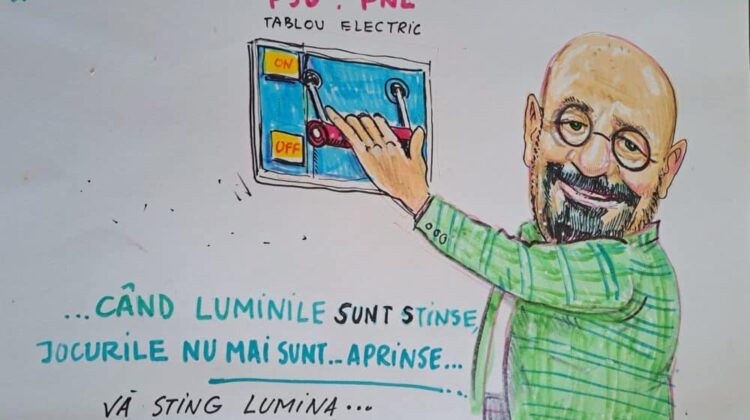 PSD . PNL
TABLOU ELECTRIC
ON
OFF
...CÂND LUMINILE SUNT STINSE,
JOCURILE NU MAI SUNT... APRINSE...
VĂ STING LUMINA...